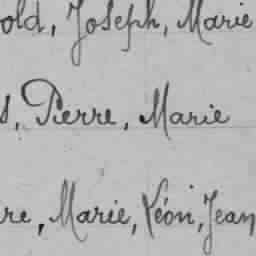 old, Joseph, Marie
s, Pierre, Marie
re, Marie, Léon, Jean